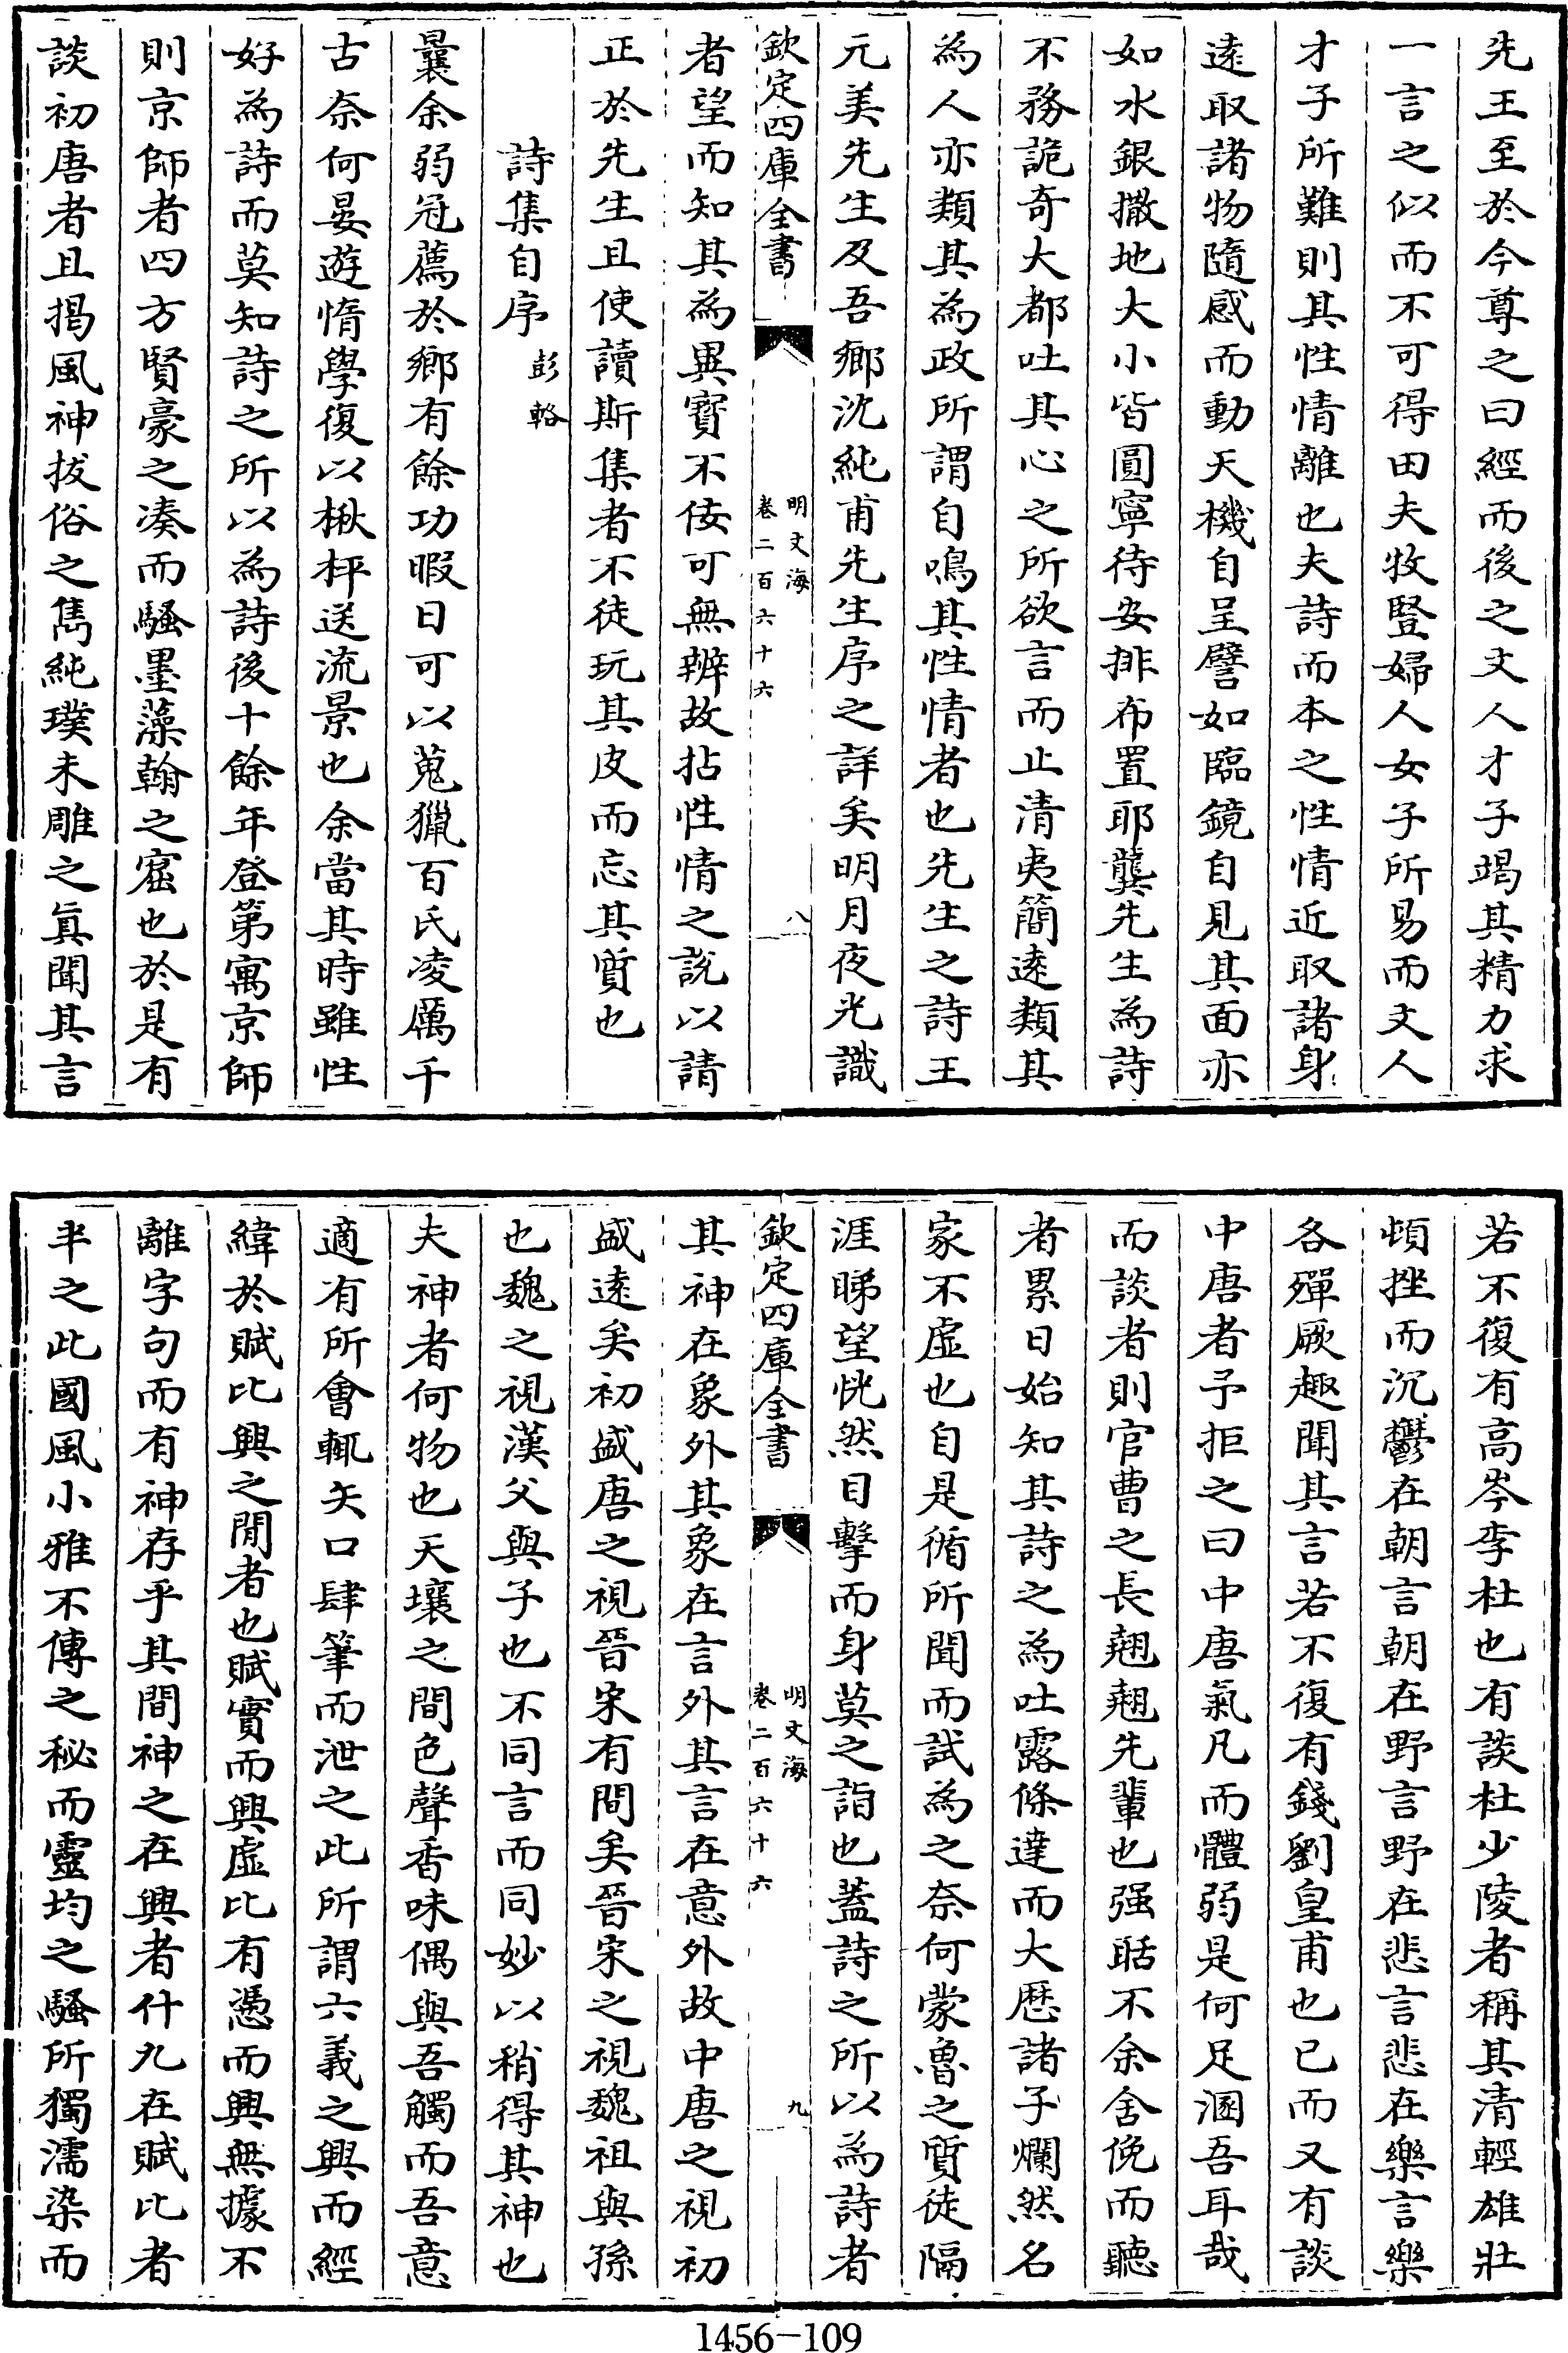 先王至於今尊之曰經而後之文人才子竭其精力求
一言之似而不可得田夫牧豎婦人女子所易而文人
才子所難則其性情離也夫詩而本之性情近取諸身
遠取諸物隨感而動天機自呈譬如臨鏡自見其面亦
如水銀撒地大小皆圓寧待安排布置耶龔先生為詩
不務詭奇大都吐其心之所欲言而止清夷簡遠類其
為人亦類其為政所謂自鳴其性情者也先生之詩王
元美先生及吾鄉沈純甫先生序之詳矣明月夜光識
欽定四庫全書
明文海
卷二百六十六
八
者望而知其為異寶不佞可無辨故拈性情之說以請
正於先生且使讀斯集者不徒玩其皮而忘其質也
詩集自序 彭輅
曩余弱冠薦於鄉有餘功暇日可以蒐獵百氏凌厲千
古奈何晏遊惰學復以楸枰送流景也余當其時雖性
好為詩而莫知詩之所以為詩後十餘年登第寓京師
則京師者四方賢豪之湊而騷墨藻翰之窟也於是有
談初唐者且揭風神拔俗之雋純璞未雕之真聞其言
若不復有高岑李杜也有談杜少陵者稱其清輕雄壯
頓挫而沉鬱在朝言朝在野言野在悲言悲在樂言樂
各殫厥趣聞其言若不復有錢劉皇甫也已而又有談
中唐者予拒之曰中唐氣凡而體弱是何足溷吾耳哉
而談者則官曹之長翹翹先輩也强聒不余舍俛而聽
者累日始知其詩之為吐露條達而大厯諸子爛然名
家不虛也自是循所聞而試為之奈何蒙魯之質徒隔
涯睇望恍然目擊而身莫之詣也蓋詩之所以為詩者
欽定四庫全書
明文海
卷二百六十六
九
其神在象外其象在言外其言在意外故中唐之視初
盛遠矣初盛唐之視晉宋有間矣晉宋之視魏祖與孫
也魏之視漢父與子也不同言而同妙以稍得其神也
夫神者何物也天壤之間色聲香味偶與吾觸而吾意
適有所會輒矢口肆筆而泄之此所謂六義之興而經
緯於賦比興之閒者也賦實而興虛比有憑而興無據不
離字句而有神存乎其間神之在興者什九在賦比者
半之此國風小雅不傳之秘而靈均之騷所獨濡染而
1456-109